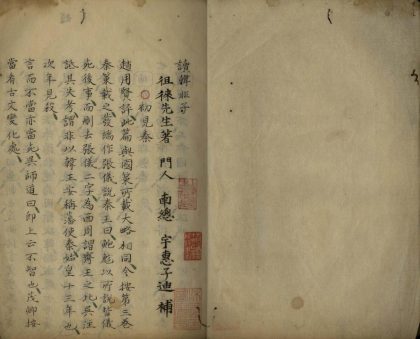 讀韓非子
徂徠先生著 門人 南總 宇惠子迪 補
初見秦
趙用賢評此篇與國策所載大略相同今按第三卷
秦策載之發端作張儀說秦王曰鮑彪以所說皆儀
死後事而刪去張儀二字為
謂非以韓王安稱藩使秦始皇十三年也
次年見殺
言而不當亦當死吳師道曰即上云不智也茂卿按
當有古文變化處